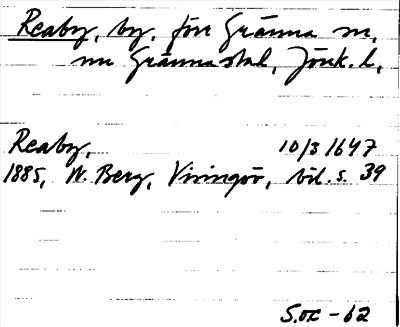 Reaby, by, förr Gränna sn,
nu Gränna stad, Jönk. l.
Reaby, 10/3 1647
1885, W. Berg, Visingsö, bil. s. 39
S.ox -62